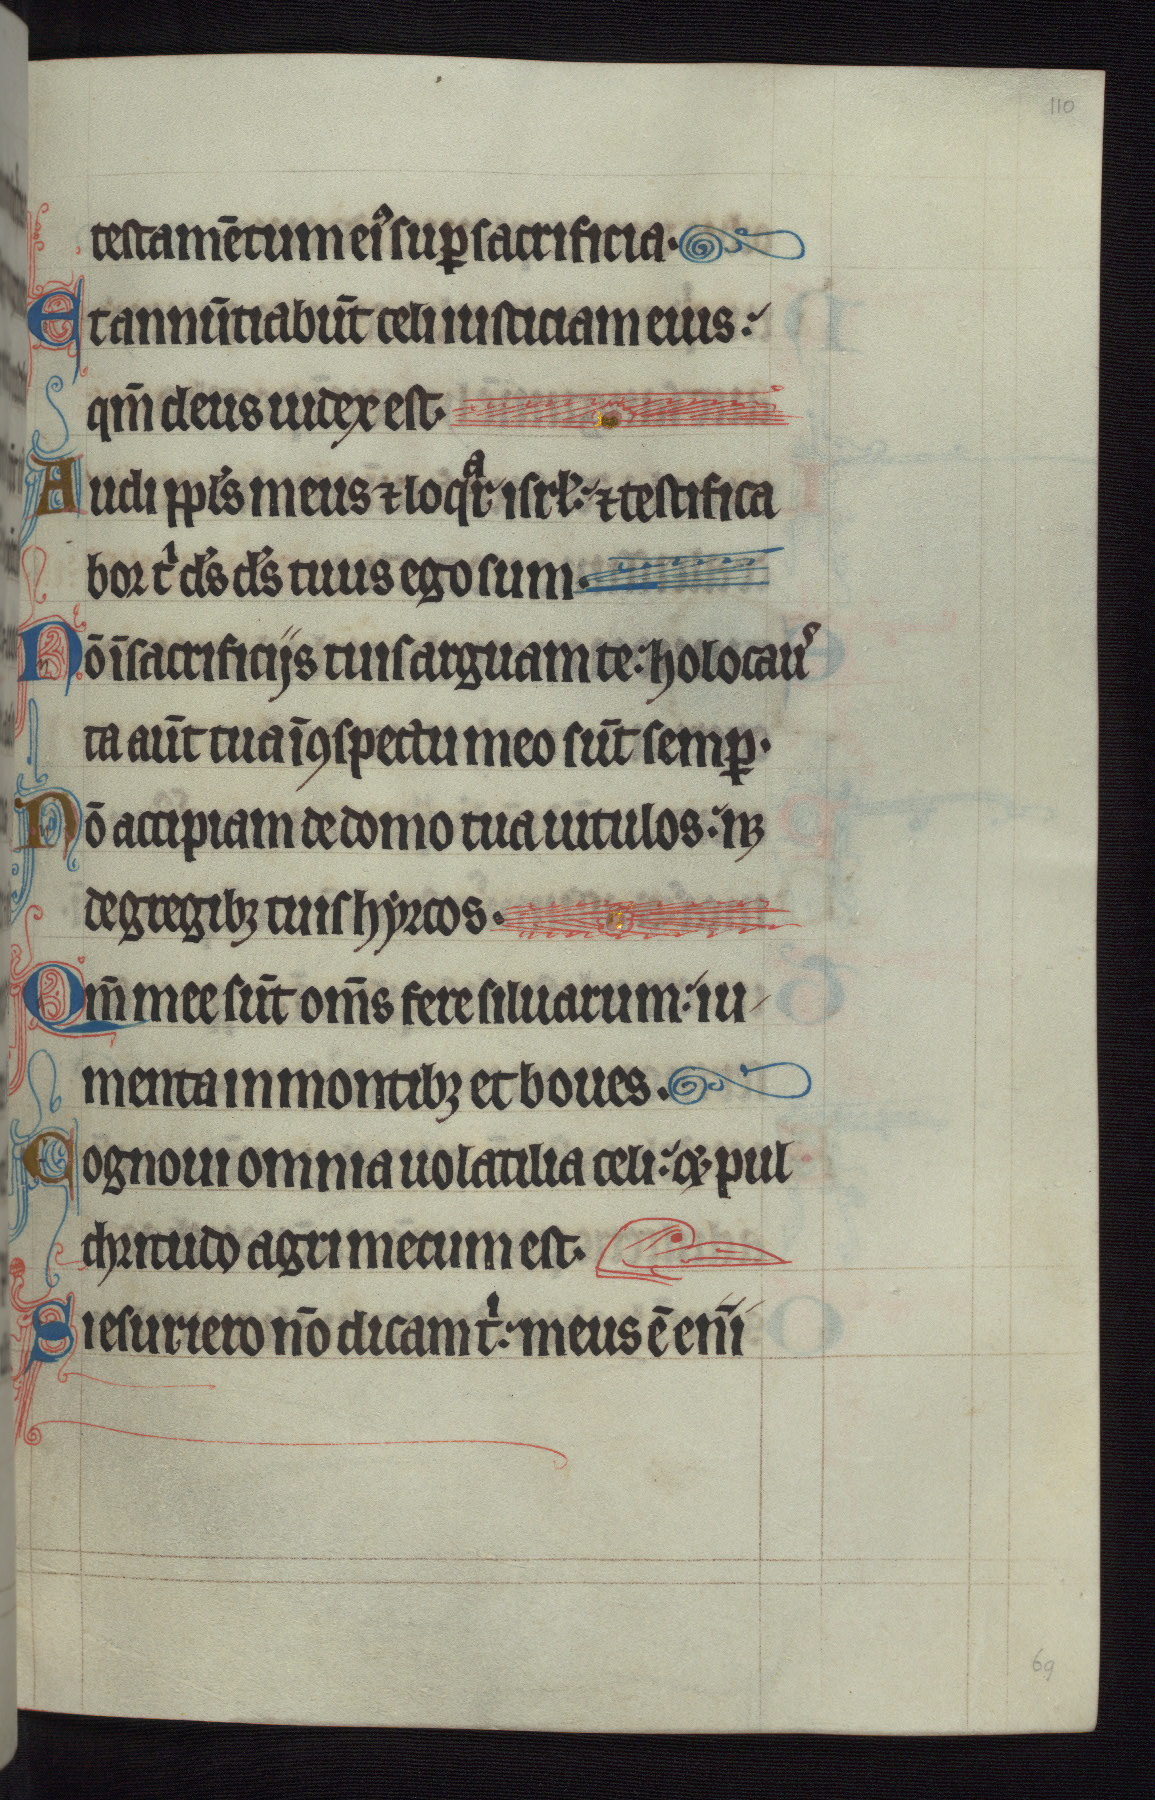 110
testamētum ei⁹ sup̲ sacrificia.
Et annūtiabūt celi iusticiam eius:
qm̄ deus iudex est.
Audi pp̄ls meus ⁊ loqᵃr isrl̄: ⁊ testifica
bor tⁱ ds̄ ds̄ tuus ego sum.
Nō ī sacrificijs tuis arguam te: holocauˢ
ta aūt tua ī ꝯspectu meo sūt semꝑ.
Nō accipiam de domo tua uitulos: neqꝫ
de gregibꝫ tuis hyrcos.
Qm̄ mee sūt om̄s fere siluarum: iu
menta in montibꝫ et boues.
Cognoui omnia uolatilia celi: ⁊ pul
chritudo agri mecum est.
Si esuriero nō dicam tⁱ: meus ē enī
69